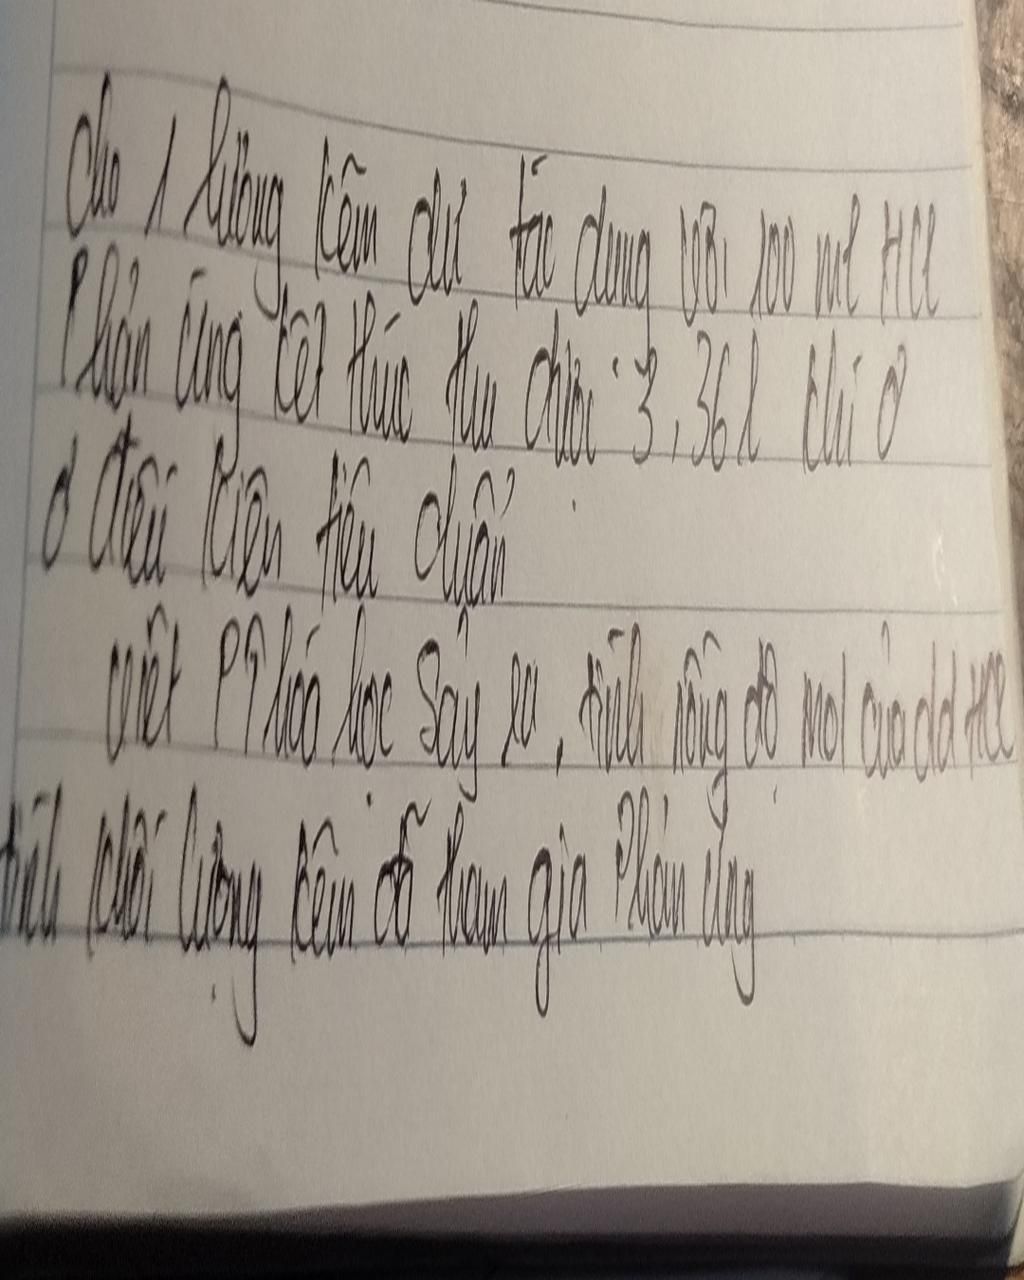 cho 1 lượng kẽm dư tác dụng với 100 ml HCl
Phản ứng kết thúc thu được 3,36 l khí ở
ở điều kiện tiêu chuẩn
viết PT hoá học sảy ra, tính nồng độ mol của dd HCl
tính khối lượng kẽm đã tham gia Phản ứng